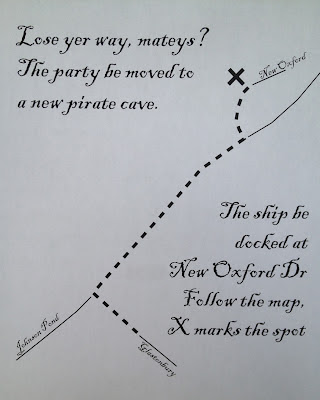 Lose yer way, mateys?
The party be moved to
a new pirate cave.
X
New Oxford
The ship be
docked at
New Oxford Dr
Follow the map,
X marks the spot
Johnson Pond
Glastonbury